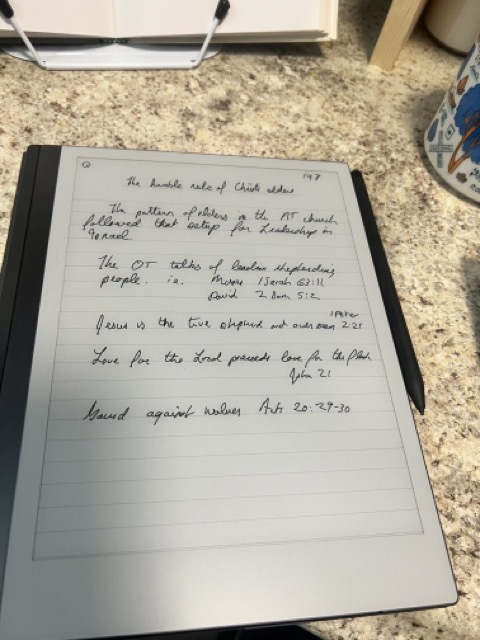 148
The humble rule of Christ's elders
The pattern of elders in the NT church
followed that setup for Leadership in
Israel
The OT talks of leaders shepherding
people. i.e. Moses Isaiah 63:11
David 2 Sam 5:2
1 Peter
Jesus is the true shepherd and overseer 2:25
Love for the Lord precedes love for the flock
John 21
Guard against wolves Acts 20:29-30